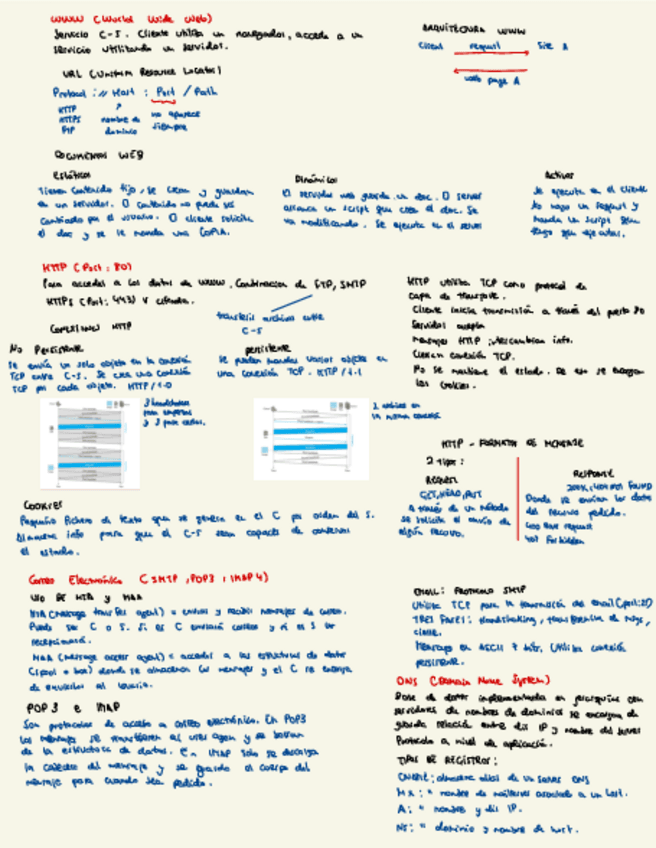 WWW (World Wide Web)
Servicio C-S. Cliente utiliza un navegador, accede a un
servicio utilizando un servidor.
URL (Uniform Resource Locator)
Protocol :// Host : Port / Path
HTTP
HTTPS
FTP
nombre de
dominio
no aparece
siempre
ARQUITECTURA WWW
Client request Site A
web page A
DOCUMENTOS WEB
Estáticos
Tienen contenido fijo, se crean y guardan
en un servidor. El contenido no puede ser
cambiado por el usuario. El cliente solicita
el doc y se le manda una COPIA.
Dinámicos
El servidor web guarda un doc. El server
arranca un script que crea el doc. Se
va modificando. Se ejecuta en el server
Activos
Se ejecuta en el cliente
Yo hago un request y
manda un script que
tengo que ejecutar.
HTTP (Port: 80)
Para acceder a los datos de WWW. Combinación de FTP, SMTP
HTTPS (Port: 443) v cifrada.
transferir archivos entre
C-S
CONEXIONES HTTP
No Persistente
Se envía un solo objeto en la conexión
TCP entre C-S. Se crea una conexión
TCP por cada objeto. HTTP/1.0
persistente
Se pueden mandar varios objetos en
una conexión TCP. HTTP/1.1
HTTP utiliza TCP como protocolo de
capa de transporte.
Cliente inicia transmisión a través del puerto 80
Servidor acepta
mensajes HTTP intercambian info.
Cierran conexión TCP.
No se mantiene el estado. De eso se encargan
las cookies.
HTTP - FORMATO DE MENSAJE
2 tipos:
REQUEST
GET, HEAD, PUT
A través de un método
se solicita el envío de
algún recurso.
RESPONSE
200 OK, 404 NOT FOUND
Donde se envían los datos
del recurso pedido.
400 Bad request
Forbidden
COOKIES
Pequeño fichero de texto que se genera en el C por orden del S.
Almacena info para que el C-S sean capaces de conservar
el estado.
Correo Electrónico (SMTP, POP3, IMAP4)
USO DE MTA y MAA
MTA (message transfer agent) = enviar y recibir mensajes de correo.
Puede ser C o S. Si es C enviará correos y si es S los
recepcionará.
MAA (message access agent) = acceder a las estructuras de datos
(spool o box) donde se almacenan los mensajes y el C se encarga
de enviarlos al usuario.
POP3 e IMAP
Son protocolos de acceso a correo electrónico. En POP3
los mensajes se transfieren al user agent y se borran
de la estructura de datos. En IMAP solo se descarga
la cabecera del mensaje y se guarda el cuerpo del
mensaje para cuando sea pedido.
EMAIL: PROTOCOLO SMTP
Utiliza TCP para la transmisión del email (port: 25)
TRES FASES: Handshaking, transferencia de msgs,
cierre.
Mensajes en ASCII 7 bits. Utiliza conexión
persistente.
DNS (Domain Name System)
Base de datos implementada en jerarquías con
servidores de nombres de dominios se encargan de
guardar relación entre dir IP y nombre del server
Protocolo a nivel de aplicación.
TIPOS DE REGISTROS:
CNAME: almacena alias de un server DNS
MX: " nombre de mailserver asociado a un host.
A: " nombre y dir IP.
NS: " dominio y nombre de host.